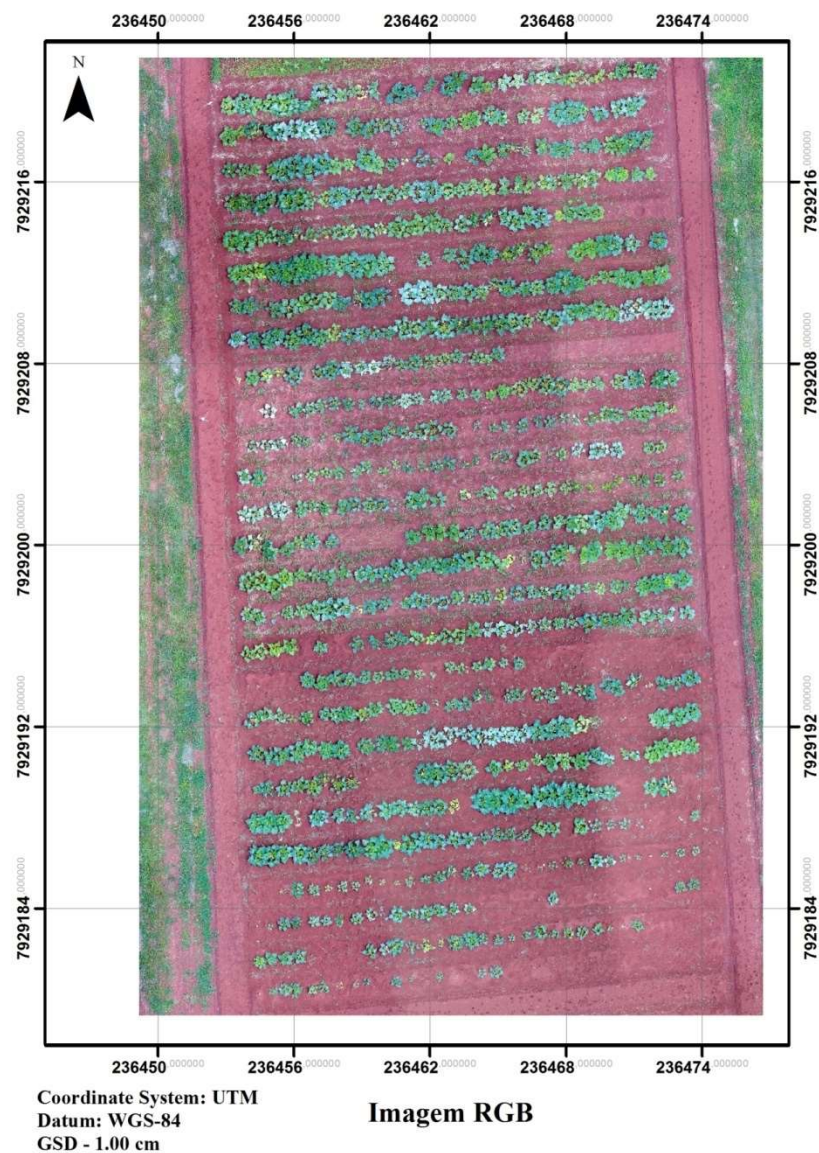 236450.000000 236456.000000 236462.000000 236468.000000 236474.000000
N
7929216.000000 7929216.000000
7929208.000000 7929208.000000
7929200.000000 7929200.000000
7929192.000000 7929192.000000
7929184.000000 7929184.000000
236450.000000 236456.000000 236462.000000 236468.000000 236474.000000
Coordinate System: UTM
Datum: WGS-84
GSD - 1.00 cm
Imagem RGB